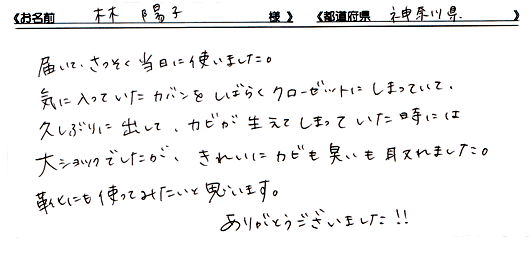 《お名前 林 陽子 様》《都道府県 神奈川県 》
届いて、さっそく当日に使いました。
気に入っていたカバンをしばらくクローゼットにしまっていて、
久しぶりに出して、カビが生えてしまっていた時には
大ショックでしたが、きれいにカビも臭いも取れました。
靴にも使ってみたいと思います。
ありがとうございました!!